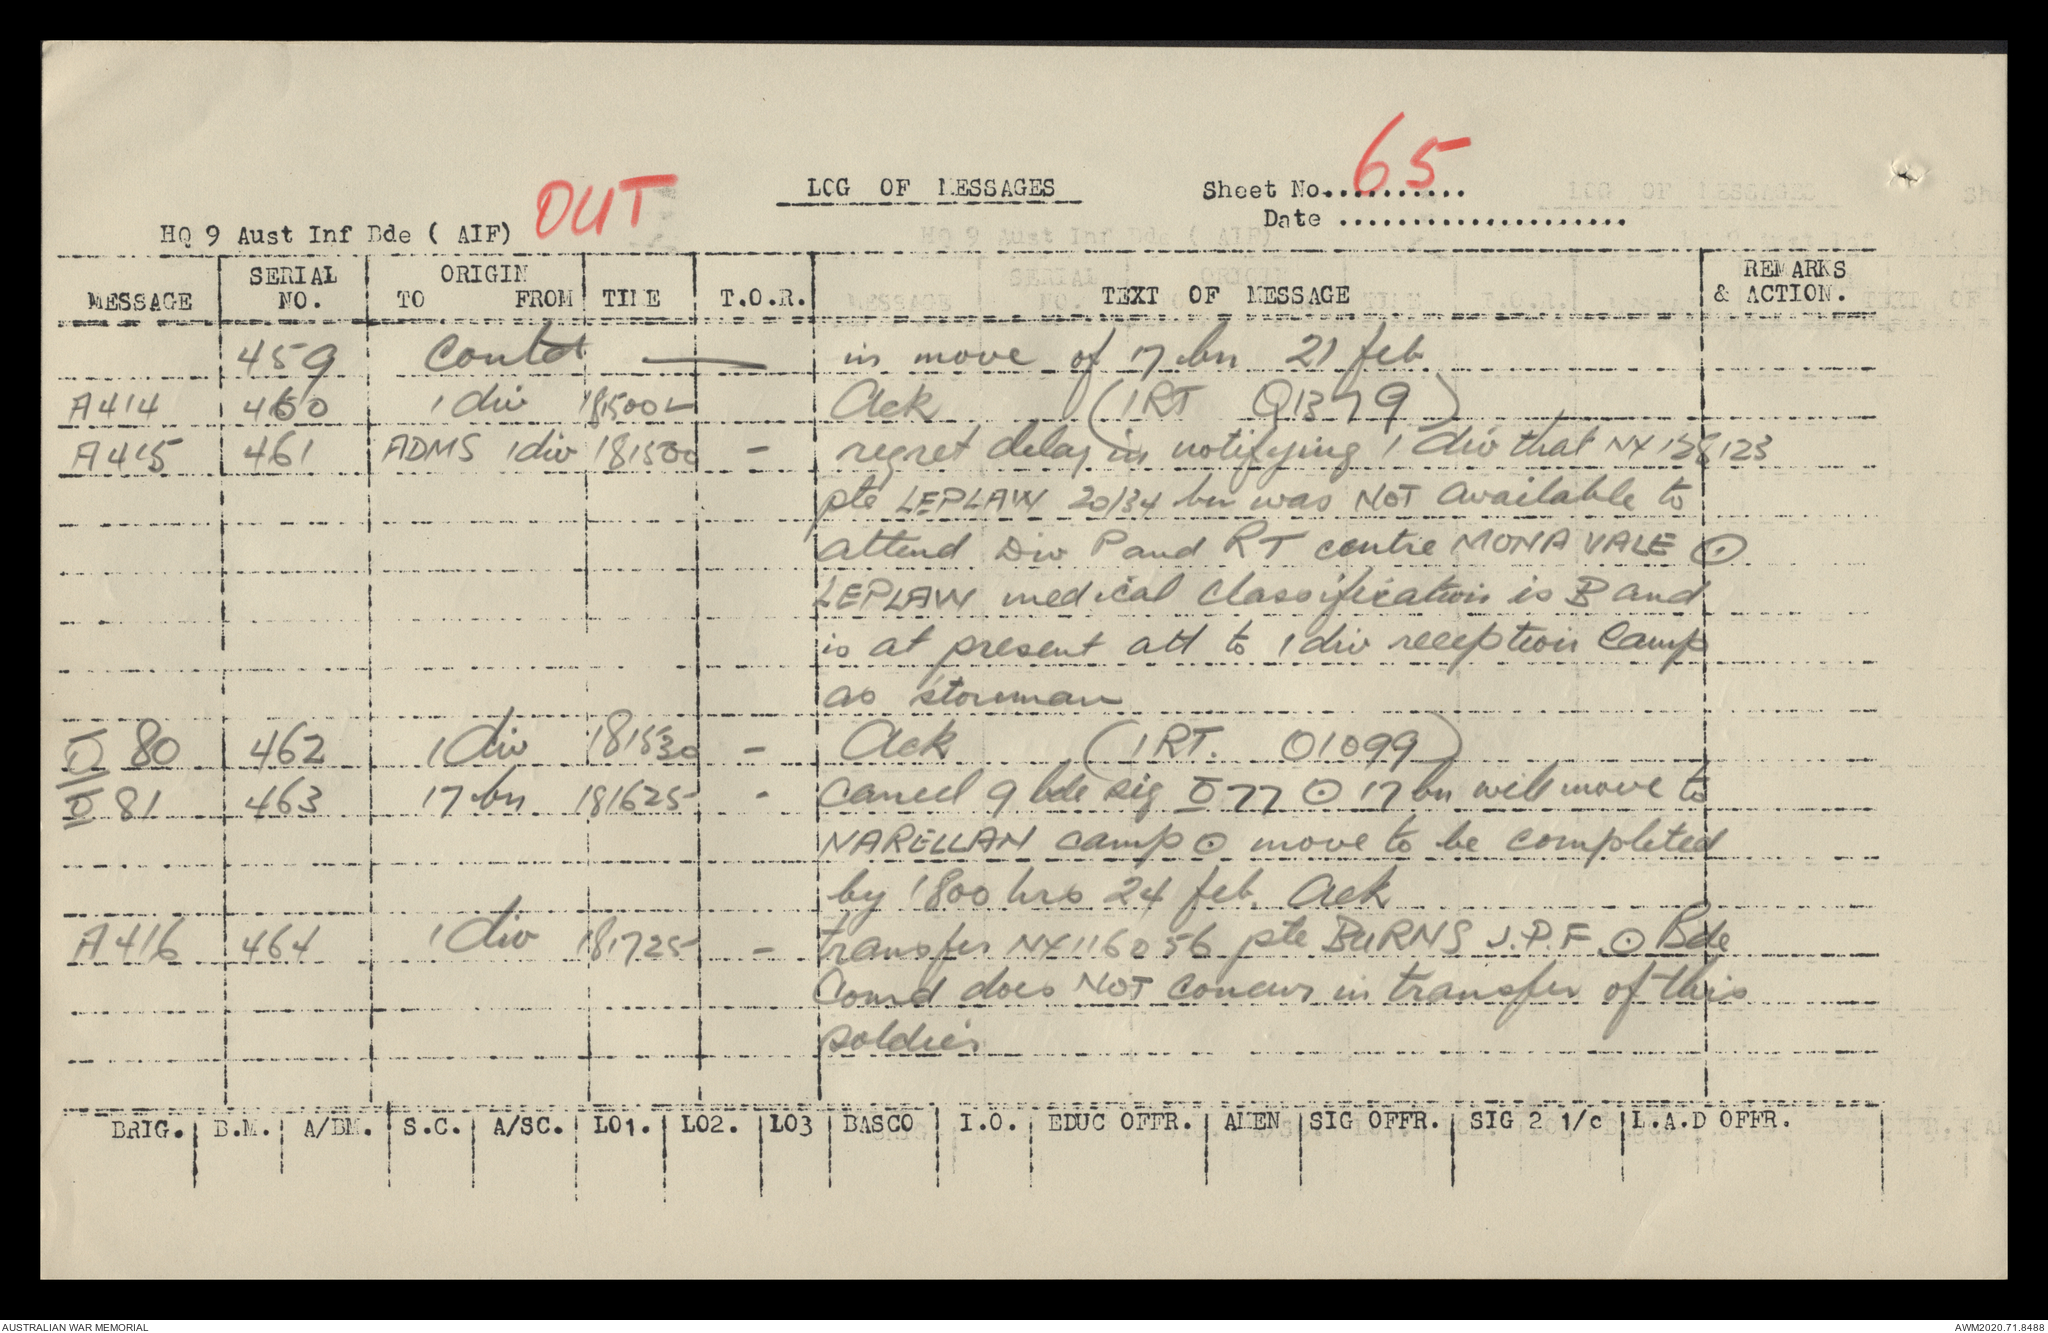 65
OUT
LOG OF MESSAGES
Sheet No...........
HQ 9 Aust Inf Bde ( AIF)
Date .....................
MESSAGE SERIAL NO. ORIGIN TO FROM TIME T.O.R. TEXT OF MESSAGE REMARKS & ACTION.
459 Contd — in move of 17 bn 21 feb
A414 460 1 div 181500 Ack (IRT Q1379)
A415 461 ADMS 1div 181500 - regret delay in notifying 1 div that NX128123
pte LEPLAW 20/34 bn was NOT available to
attend Div P and RT centre MONA VALE ⊙
LEPLAW medical classification is B and
is at present att to 1 div reception Camp
as storeman
O 80 462 1 div 181530 - Ack (IRT. O1099)
O 81 463 17 bn 181625 - Cancel 9 bde sig O 77 ⊙ 17 bn will move to
NARELLAN camp ⊙ move to be completed
by 1800 hrs 24 feb. Ack
A416 464 1 div 181725 - transfer NX116056 pte BURNS J.P.F. ⊙ Bde
Comd does NOT concur in transfer of this
soldier
BRIG. B.M. A/BM. S.C. A/SC. LO1. LO2. LO3 BASCO I.O. EDUC OFFR. AMEN SIG OFFR. SIG 2 1/c L.A.D OFFR.
AUSTRALIAN WAR MEMORIAL
AWM2020.71.8488